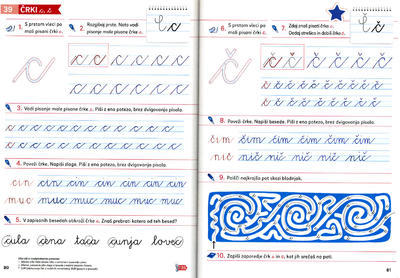 39 ČRKI c, č
1. S prstom vleci po mali pisani črki c.
2. Razgibaj prste. Nato vadi pisanje male pisane črke c.
C c
c c c c c c c
c c c c c c c
3. Vadi pisanje male pisane črke c. Piši z eno potezo, brez dvigovanja pisala.
4. Poveži črke. Napiši zloga. Piši z eno potezo, brez dvigovanja pisala.
cin cin cin cin cin cin
muc muc muc muc muc
5. V zapisanih besedah obkroži črke c. Znaš prebrati katero od teh besed?
cula cena taca cunja lovec
80
6. S prstom vleci po mali pisani črki č.
7. Zdaj znaš pisati črko c. Dodaj strešico in dobiš črko č.
Č č
8. Poveži črke. Napiši besede. Piši z eno potezo, brez dvigovanja pisala.
čim čim čim čim čim čim
nič nič nič nič nič nič
9. Poišči najkrajšo pot skozi blodnjak.
10. Zapiši zaporedje črk c in č, kot jih srečaš na poti.
81